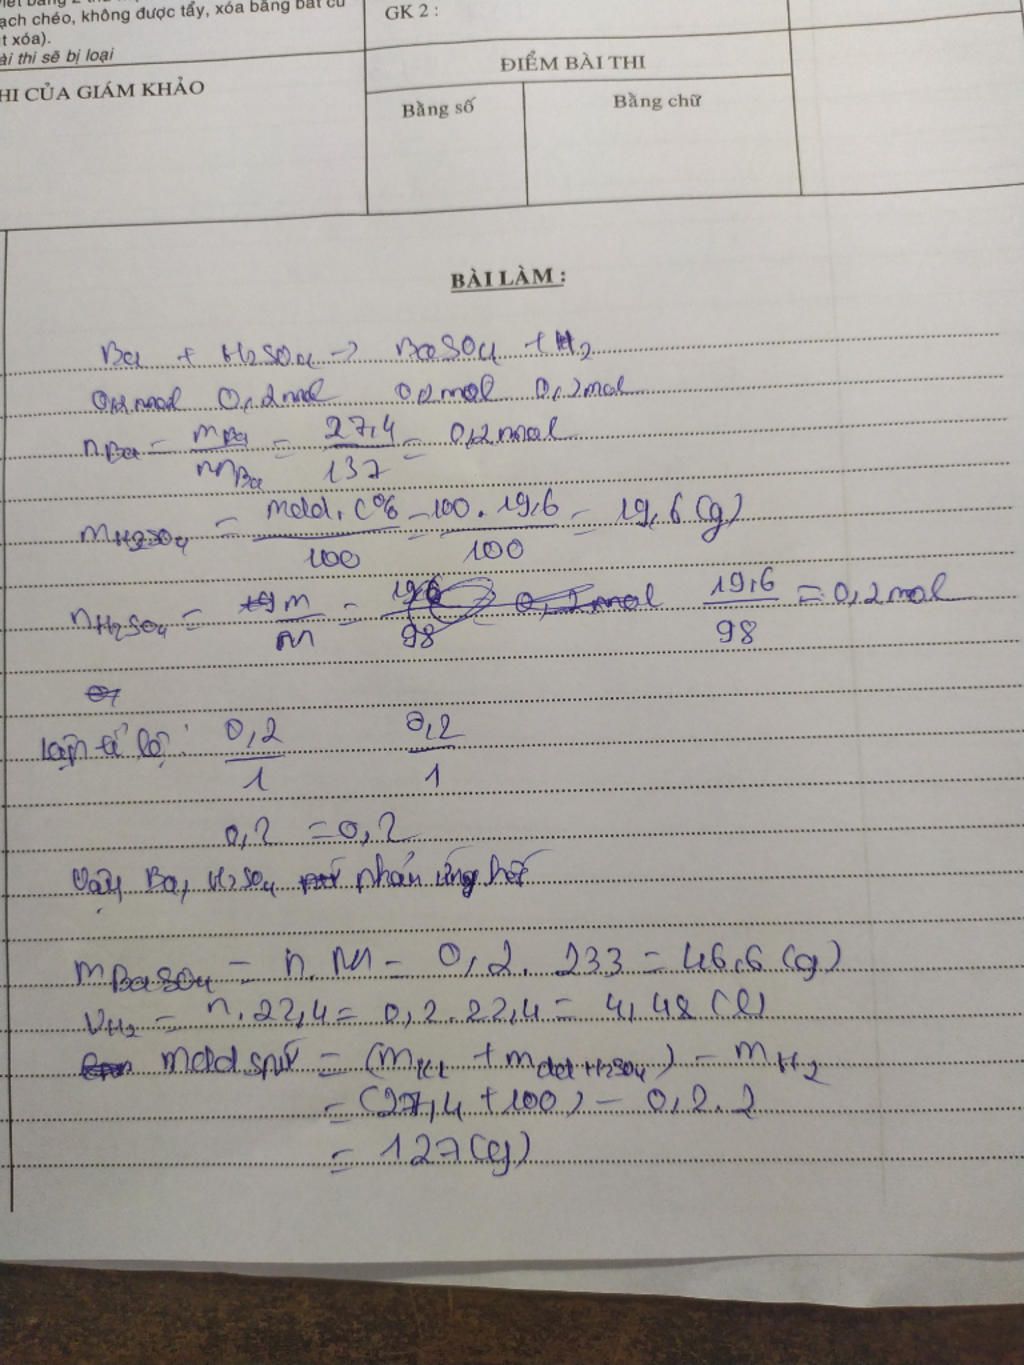 ạch chéo, không được tẩy, xóa bằng bất cứ
t xóa).
ài thi sẽ bị loại
GK 2 :
HI CỦA GIÁM KHẢO
ĐIỂM BÀI THI
Bằng số
Bằng chữ
BÀI LÀM :
Ba + H2SO4 -> BaSO4 + H2
0,2mol 0,2mol 0,2mol 0,2mol
nBa = mBa / mmBa = 27,4 / 137 = 0,2mol
mH2SO4 = mdd. C% / 100 = 100 . 19,6 / 100 = 19,6 (g)
nH2SO4 = m / M = 19,6 / 98 = 0,2mol
Lập tỉ lệ: 0,2 / 1 0,2 / 1
0,2 = 0,2
Vậy Ba, H2SO4 phản ứng hết
mBaSO4 = n. M = 0,2. 233 = 46,6 (g)
VH2 = n. 22,4 = 0,2. 22,4 = 4,48 (l)
mdd spứ = (mKL + mdd H2SO4) - mH2
= (27,4 + 100) - 0,2.2
= 127(g)